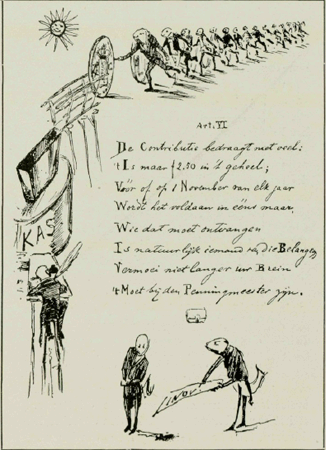 Art. VI
De Contributie bedraagt niet veel:
't Is maar f 2.50 in 't geheel;
Vóór of op 1 November van elk jaar
Wordt het voldaan in ééns maar,
Wie dat moet ontvangen
Is natuurlijk iemand v/d die Belangen
Vermoei niet langer uw Brein
't Moet bij den Penningmeester zijn.
KAS
1 NOV